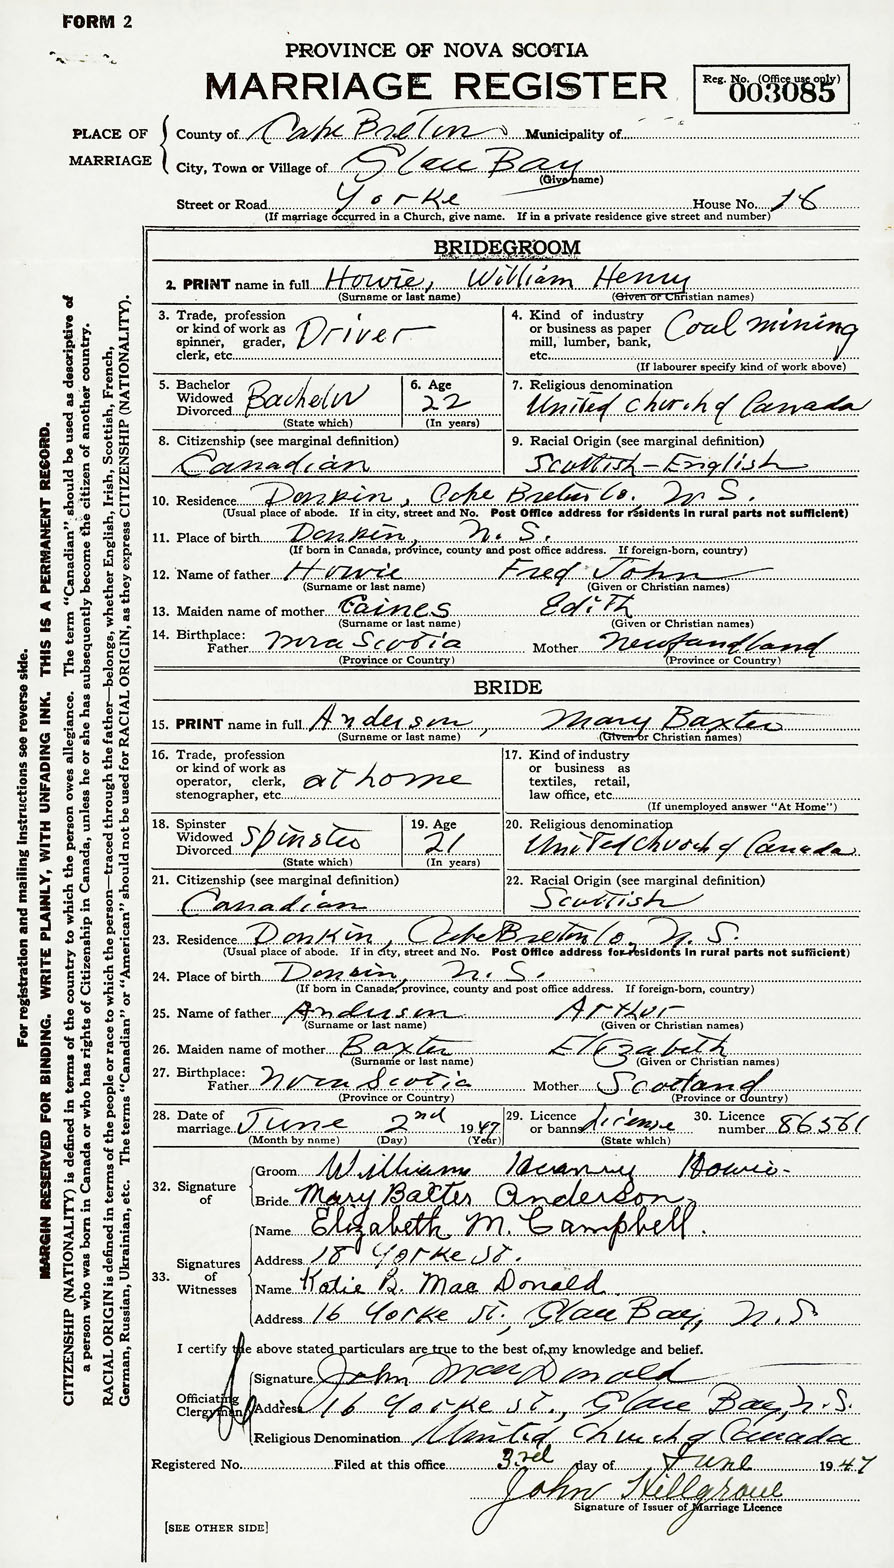 FORM 2
PROVINCE OF NOVA SCOTIA
MARRIAGE REGISTER
Reg. No. (Office use only)
003085
PLACE OF MARRIAGE
County of Cape Breton Municipality of
City, Town or Village of Glace Bay
(Give name)
Street or Road Yorke House No. 16
(If marriage occurred in a Church, give name. If in a private residence give street and number)
BRIDEGROOM
2. PRINT name in full Howie, William Henry
(Surname or last name) (Given or Christian names)
3. Trade, profession or kind of work as spinner, grader, clerk, etc. Driver
4. Kind of industry or business as paper mill, lumber, bank, etc. Coal mining
(If labourer specify kind of work above)
5. Bachelor Widowed Divorced Bachelor
(State which)
6. Age 22
(In years)
7. Religious denomination
United Church of Canada
8. Citizenship (see marginal definition)
Canadian
9. Racial Origin (see marginal definition)
Scottish-English
10. Residence Donkin, Cape Breton Co, N.S.
(Usual place of abode. If in city, street and No. Post Office address for residents in rural parts not sufficient)
11. Place of birth Donkin, N.S.
(If born in Canada, province, county and post office address. If foreign-born, country)
12. Name of father Howie Fred John
(Surname or last name) (Given or Christian names)
13. Maiden name of mother Caines Edith
(Surname or last name) (Given or Christian names)
14. Birthplace: Father Nova Scotia Mother Newfoundland
(Province or Country) (Province or Country)
BRIDE
15. PRINT name in full Anderson, Mary Baxter
(Surname or last name) (Given or Christian names)
16. Trade, profession or kind of work as operator, clerk, stenographer, etc. at home
17. Kind of industry or business as textiles, retail, law office, etc.
(If unemployed answer "At Home")
18. Spinster Widowed Divorced Spinster
(State which)
19. Age 21
(In years)
20. Religious denomination
United Church of Canada
21. Citizenship (see marginal definition)
Canadian
22. Racial Origin (see marginal definition)
Scottish
23. Residence Donkin, Cape Breton Co, N.S.
(Usual place of abode. If in city, street and No. Post Office address for residents in rural parts not sufficient)
24. Place of birth Donkin, N.S.
(If born in Canada, province, county and post office address. If foreign-born, country)
25. Name of father Anderson Arthur
(Surname or last name) (Given or Christian names)
26. Maiden name of mother Baxter Elizabeth
(Surname or last name) (Given or Christian names)
27. Birthplace: Father Nova Scotia Mother Scotland
(Province or Country) (Province or Country)
28. Date of marriage June 2nd 1947
(Month by name) (Day) (Year)
29. Licence or banns License
(State which)
30. Licence number 86561
32. Signature of
Groom William Henry Howie
Bride Mary Baxter Anderson
33. Signatures of Witnesses
Name Elizabeth M. Campbell.
Address 18 Yorke St.
Name Katie B. MacDonald
Address 16 Yorke St., Glace Bay, N.S.
I certify the above stated particulars are true to the best of my knowledge and belief.
Officiating Clergyman
Signature John MacDonald
Address 16 Yorke St., Glace Bay, N.S.
Religious Denomination United Church of Canada
Registered No. Filed at this office 3rd day of June 1947
John
Signature of Issuer of Marriage Licence
[SEE OTHER SIDE]
For registration and mailing instructions see reverse side.
MARGIN RESERVED FOR BINDING. WRITE PLAINLY, WITH UNFADING INK. THIS IS A PERMANENT RECORD.
CITIZENSHIP (NATIONALITY) is defined in terms of the country to which the person owes allegiance. The term "Canadian" should be used as descriptive of
a person who was born in Canada or who has rights of Citizenship in Canada, unless he or she has subsequently become the citizen of another country.
RACIAL ORIGIN is defined in terms of the people or race to which the person—traced through the father—belongs, whether English, Irish, Scottish, French,
German, Russian, Ukrainian, etc. The terms "Canadian" or "American" should not be used for RACIAL ORIGIN, as they express CITIZENSHIP (NATIONALITY).